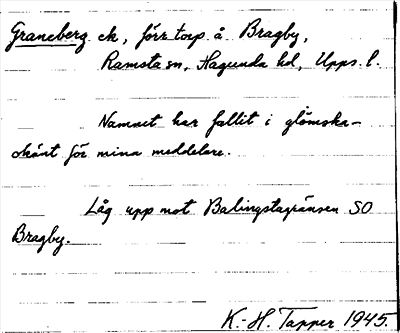 Graneberg ek, förr torp å Bragby,
Ramsta sn, Hagunda hd, Upps. l.
Namnet har fallit i glömska –
okänt för mina meddelare.
Låg upp mot Balingstagränsen SO
Bragby.
K.-H. Tapper 1945.